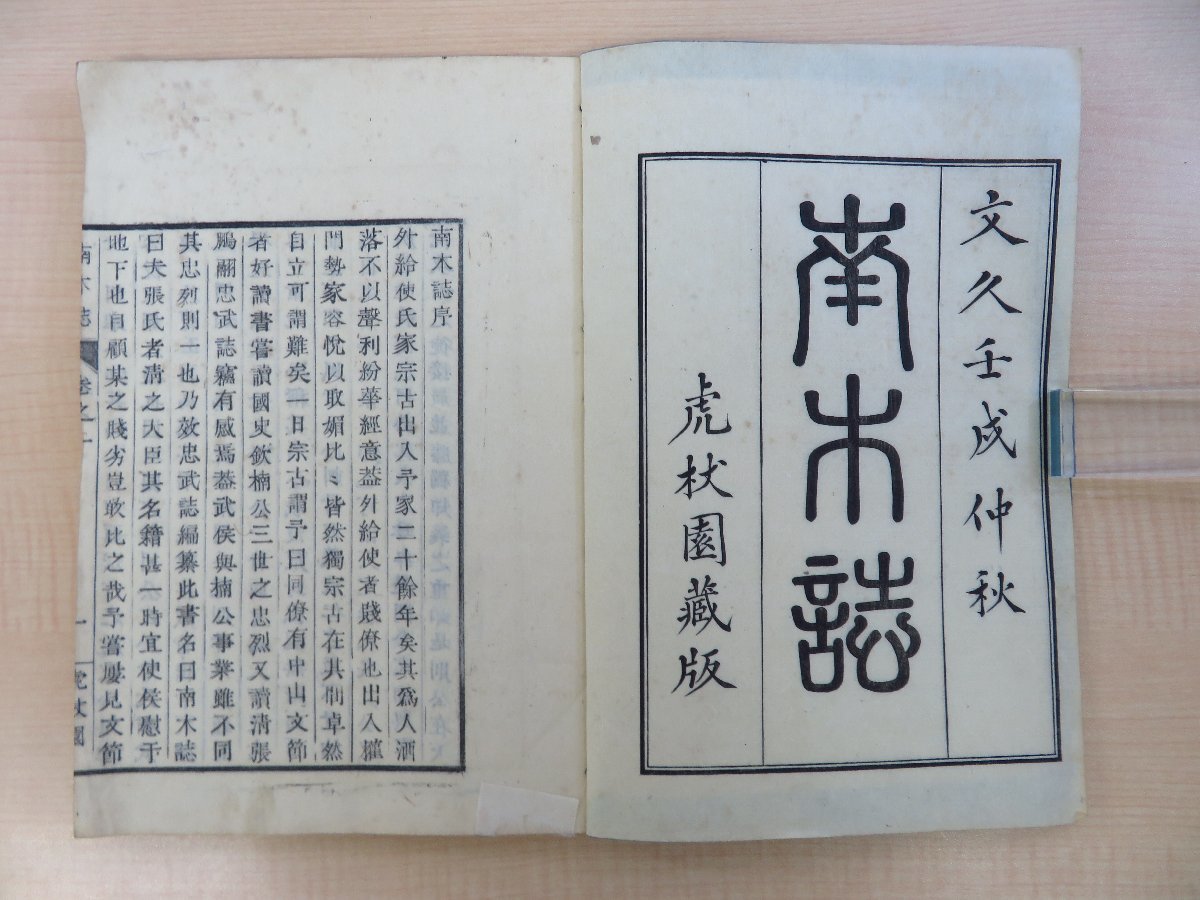 文久壬戌仲秋
南木誌
虎杖園藏版
南木誌序
外給使氏家宗古出入予家二十餘年矣其爲人洒
落不以聲利紛華經意葢外給使者賤僚也出入權
門勢家容悅以取媚比〻皆然獨宗古在其間卓然
自立可謂難矣一日宗古謂予曰同僚有中山文節
者好讀書嘗讀國史欽楠公三世之忠烈又讀淸張
鵬翮忠武誌竊有感焉葢武侯與楠公事業雖不同
其忠烈則一也乃效忠武誌編纂此書名曰南木誌
曰夫張氏者淸之大臣其名籍甚一時宜使侯慰于
地下也自顧某之賤劣豈敢比之哉予嘗屢見文節
南木誌 卷之一 一 虎杖園